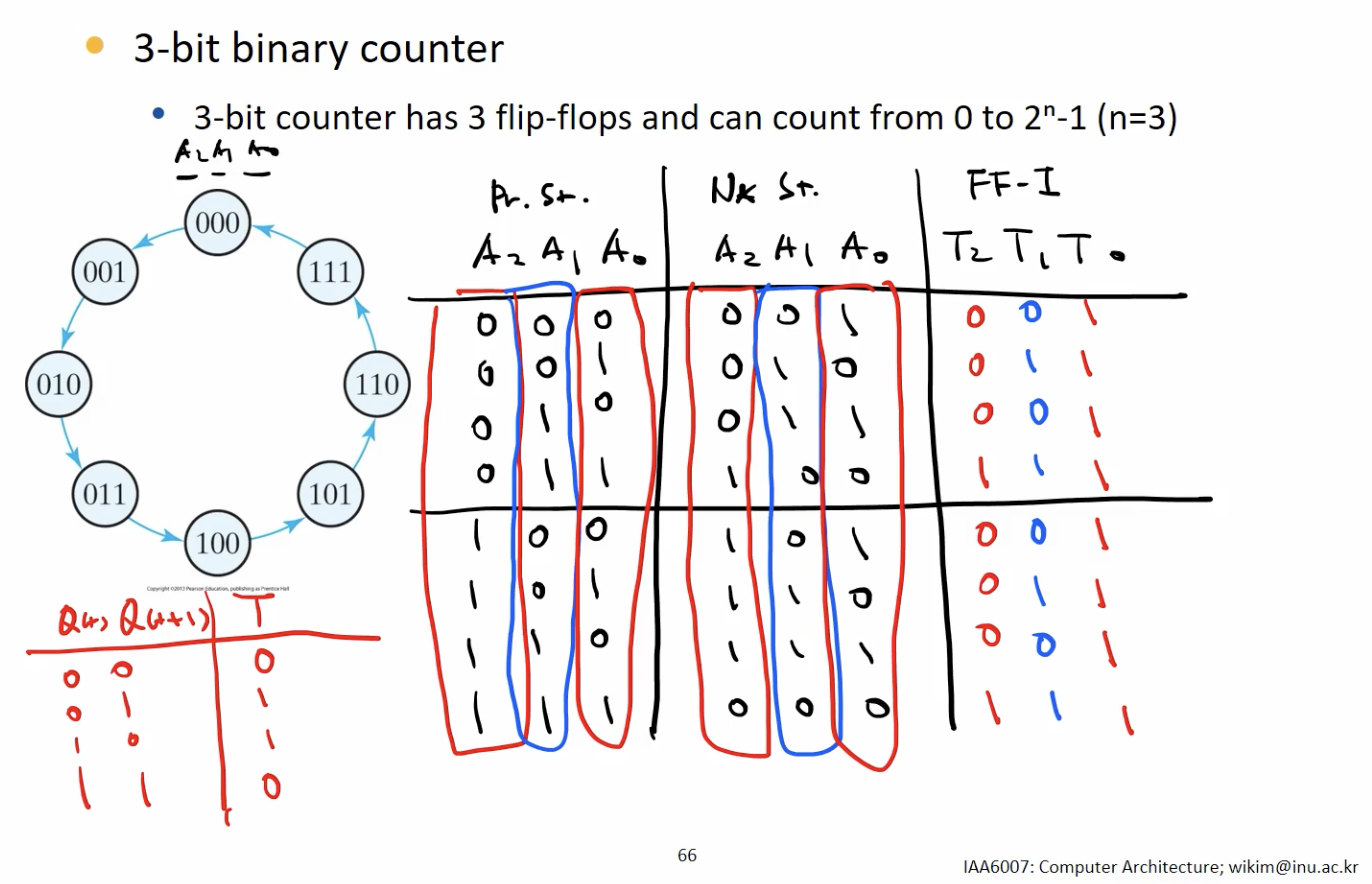 3-bit binary counter
3-bit counter has 3 flip-flops and can count from 0 to 2ⁿ-1 (n=3)
A₂ A₁ A₀
000
001
010
011
100
101
110
111
Copyright ©2012 Pearson Education, publishing as Prentice Hall
Q(t) Q(t+1) T
0 0 0
0 1 1
1 0 1
1 1 0
Pr. St. Nx St. FF-I
A₂ A₁ A₀ A₂ A₁ A₀ T₂ T₁ T₀
0 0 0 0 0 1 0 0 1
0 0 1 0 1 0 0 1 1
0 1 0 0 1 1 0 0 1
0 1 1 1 0 0 1 1 1
1 0 0 1 0 1 0 0 1
1 0 1 1 1 0 0 1 1
1 1 0 1 1 1 0 0 1
1 1 1 0 0 0 1 1 1
66
IAA6007: Computer Architecture; wikim@inu.ac.kr